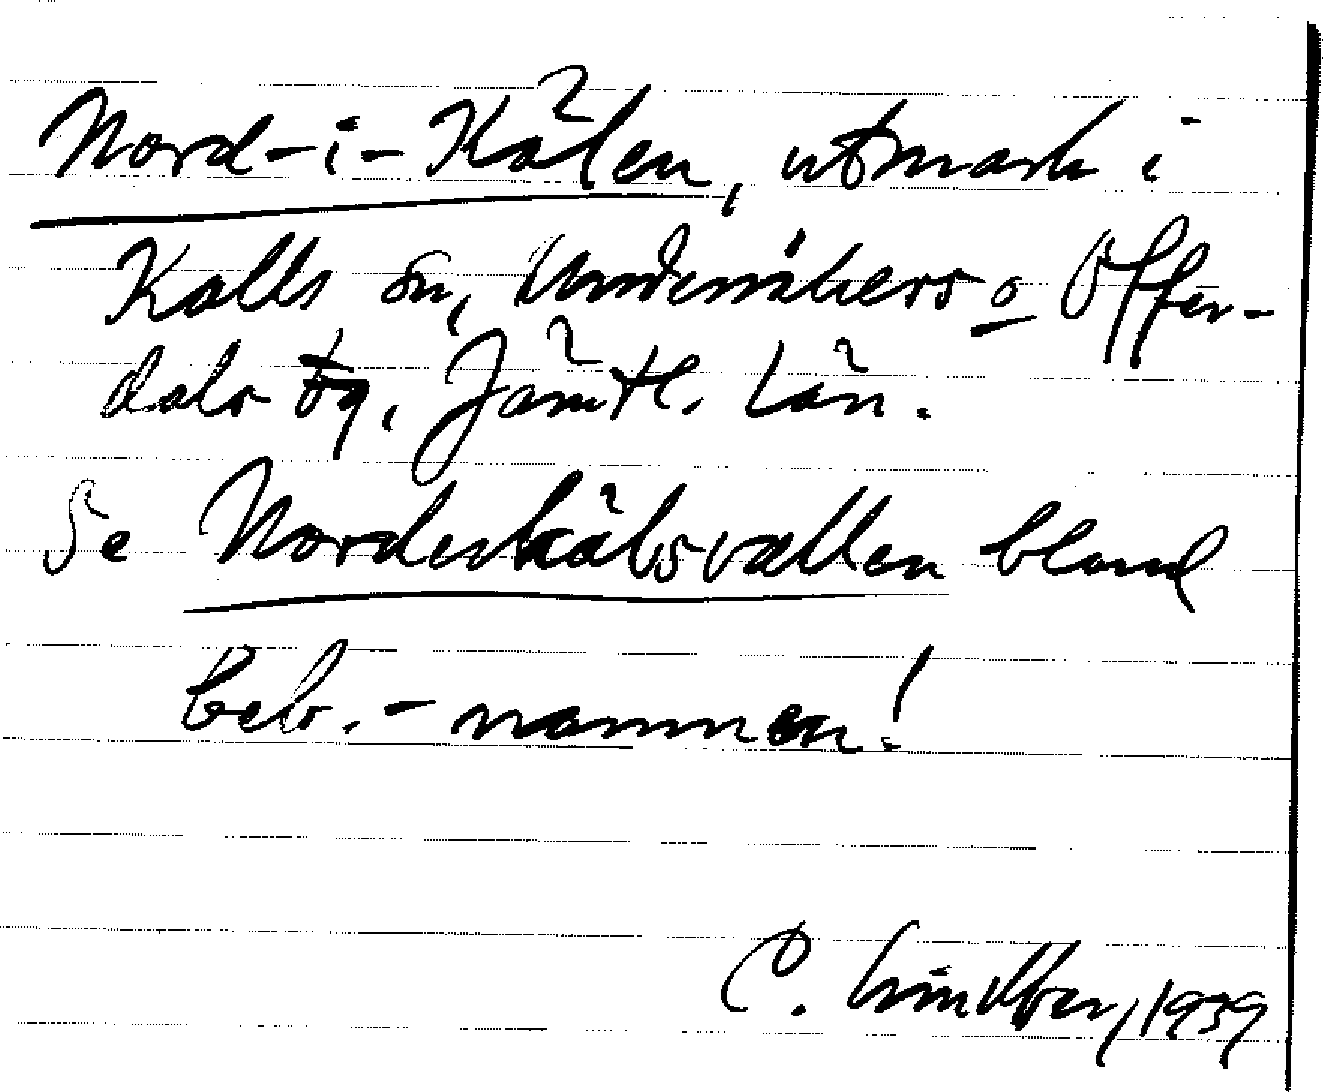 Nord-i-Kälen, utmark i
Kalls sn, Undersåkers o Offer-
dals tg, Jämtl. län.
Se Norderkälsvallen bland
beb.-namnen!
C. Lindberg 1939